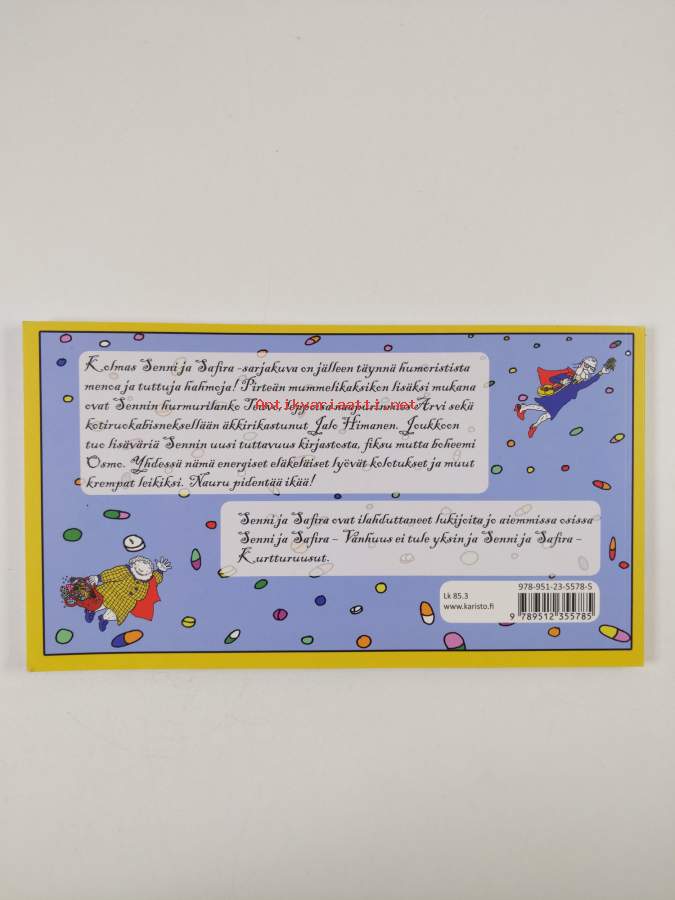 Kolmas Senni ja Safira -sarjakuva on jälleen täynnä humoristista
menoa ja tuttuja hahmoja! Pirteän mummelikaksikon lisäksi mukana
Antikvariaatti.net
ovat Sennin hurmurilanko Toivo, leppoisa naapurinmies Arvi sekä
kotiruokabisneksellään äkkirikastunut Jalo Himanen. Joukkoon
tuo lisäväriä Sennin uusi tuttavuus kirjastosta, fiksu mutta boheemi
Osmo. Yhdessä nämä energiset eläkeläiset lyövät kolotukset ja muut
krempat leikiksi. Nauru pidentää ikää!
Senni ja Safira ovat ilahduttaneet lukijoita jo aiemmissa osissa
Senni ja Safira – Vanhuus ei tule yksin ja Senni ja Safira –
Kurtturuusut.
978-951-23-5578-5
Lk 85.3
www.karisto.fi
9 789512 355785